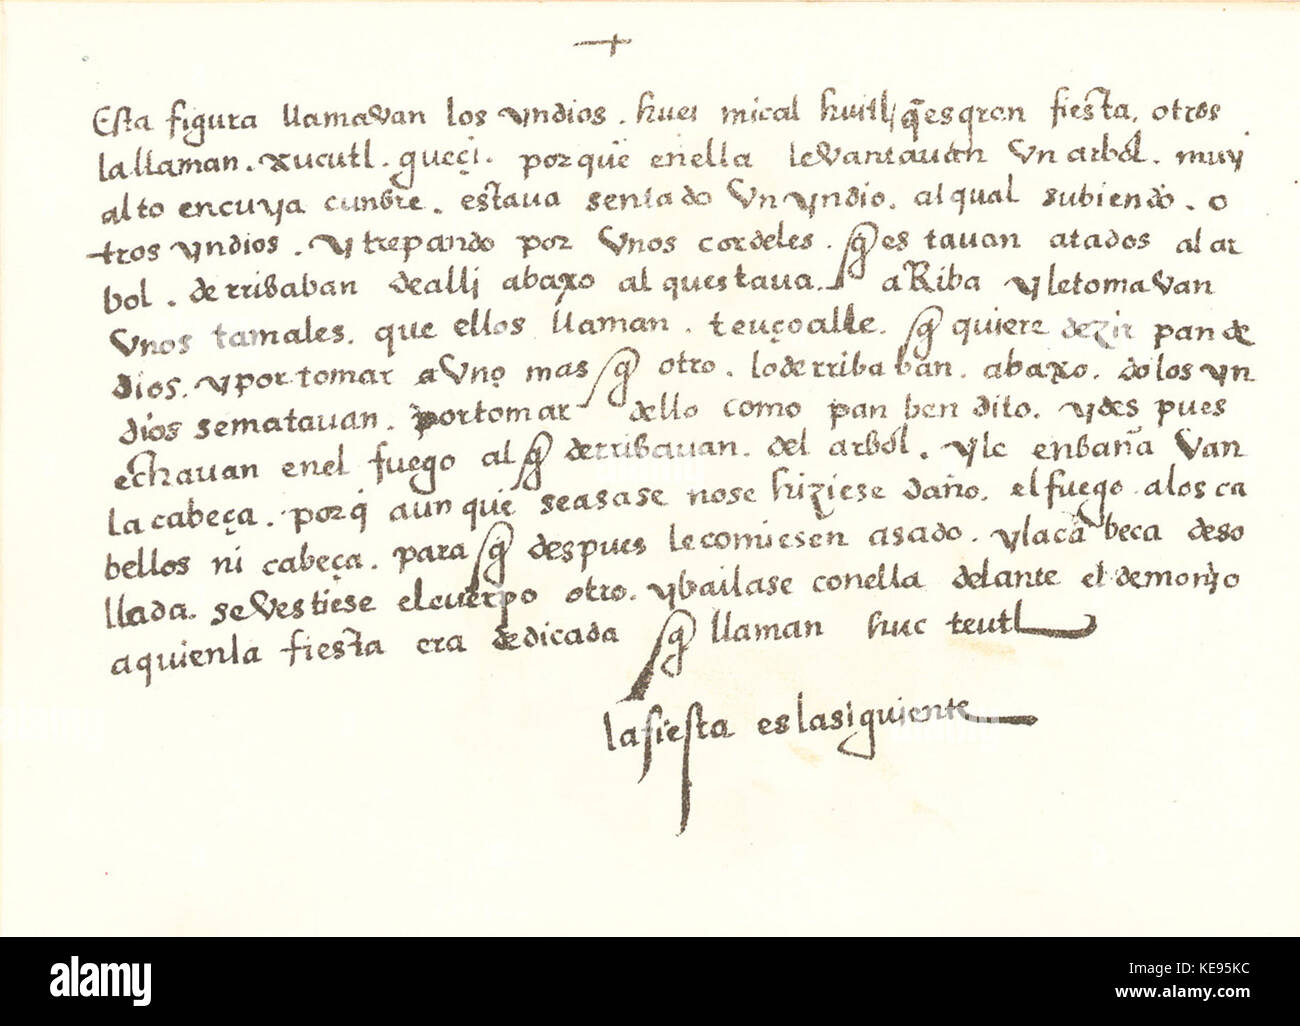 Esta figura llamavan los yndios. huei mical huitl, q̃ es gran fiesta, otros
la llaman. xucutl. gueçi. por que en ella levantauan un arbol. muy
alto en cuya cunbre. estaua sentado un yndio. al qual subiendo. o
tros yndios. y trepando por unos cordeles. q̃ estauan atados al ar
bol. derribaban de alli abaxo al questaua. aRiba y le tomavan
unos tamales. que ellos llaman. teuçoalle. q̃ quiere dezir pan de
dios. y por tomar a uno mas q̃ otro. lo derribaban. abaxo. do los yn
dios se matauan. por tomar dello como pan bendito. y des pues
echauan en el fuego al q̃ derribauan. del arbol. y le enbaña van
la cabeça. porq̃ aun que se asase no se hiziese daño. el fuego a los ca
bellos ni cabeça. para q̃ despues le comiesen asado. y la ca beca deso
llada. se vestiese el cuerpo otro. y bailase con ella delante el demonyo
a quien la fiesta era dedicada q̃ llaman huc teutl
la fiesta es la siguiente
alamy
Image ID: KE95KC
www.alamy.com